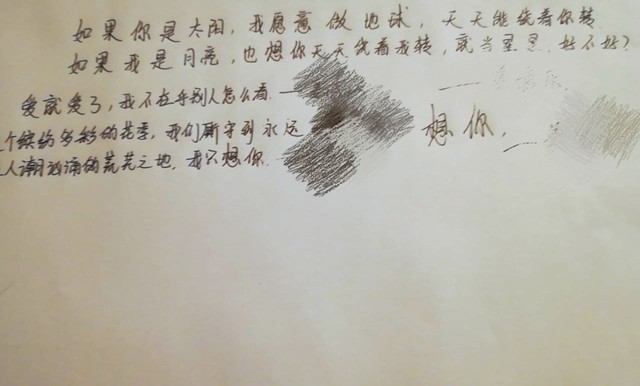 如果你是太阳,我愿意做地球,天天能绕着你转
如果我是月亮,也想你天天绕着我转,就当星星,好不好?
爱就爱了,我不在乎别人怎么看.——
个缤纷多彩的花季,我们厮守到永远
人潮汹涌的荒芜之地,我只想你.
想你,